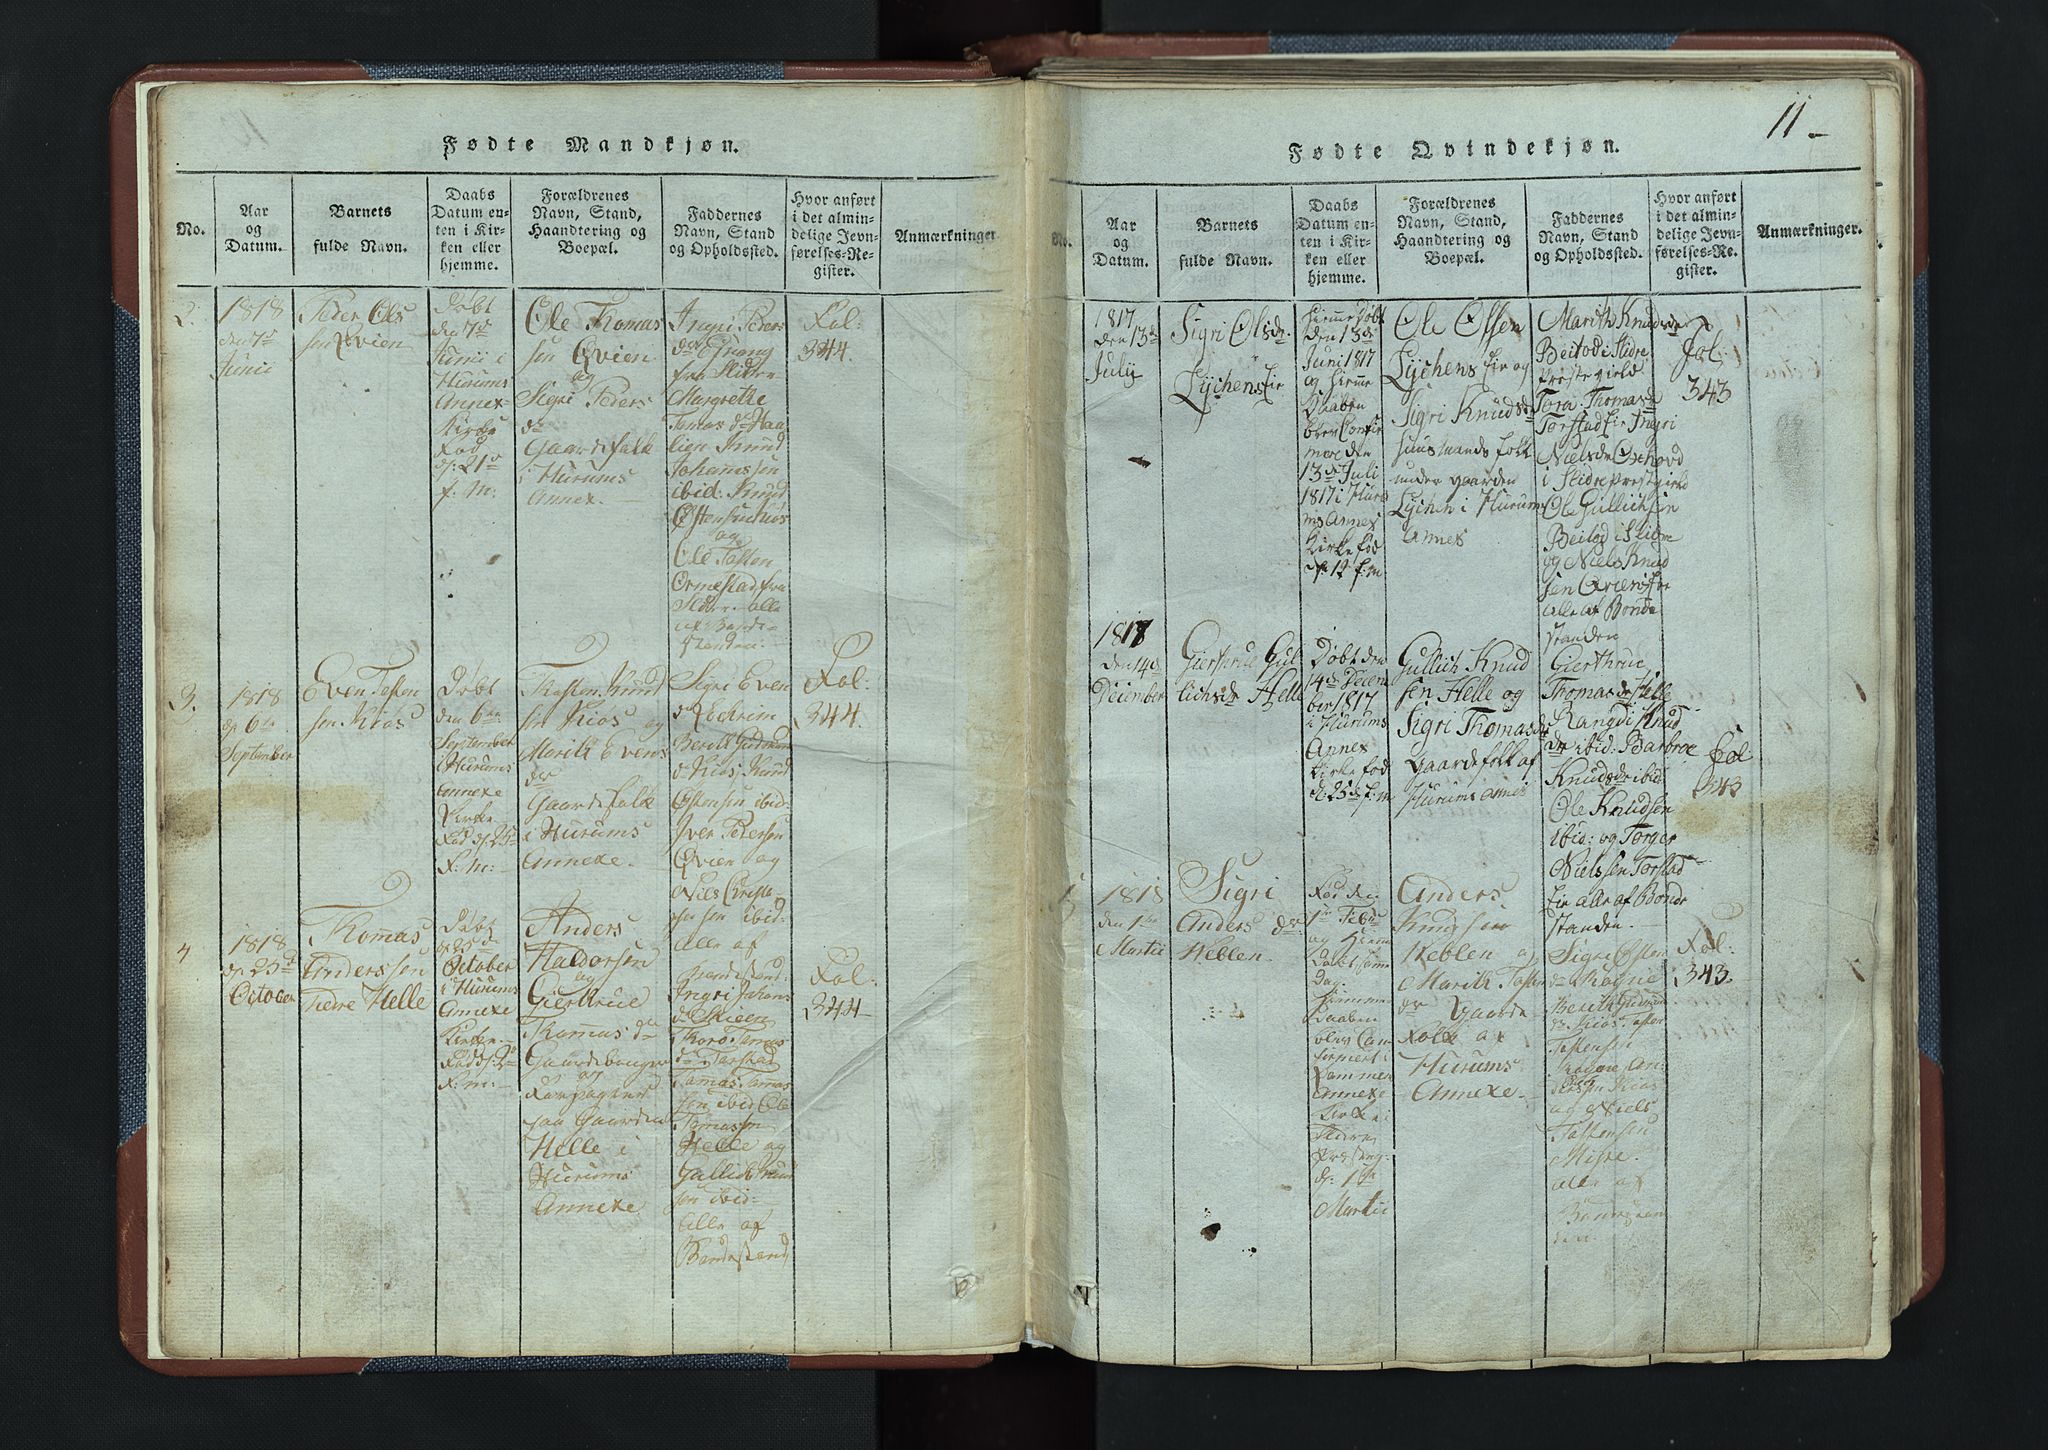 Fødte Mandkjøn.
No.
Aar
og
Datum.
Barnets
fulde Navn.
Daabs
Datum en-
ten i Kir-
ken eller
hjemme.
Forældrenes
Navn, Stand,
Haandtering og
Boepæl.
Faddernes
Navn, Stand
og Opholdssted.
Hvor anført
i det almin-
delige Jevn-
førelses-Re-
gister.
Anmærkninger
2.
1818
den 7de
Junii
Peder Ols
sen Qvien
Døbt
den 7de
Junii i
Hurums
Annex
Kirke
Fød
d: 21de
f. M:
Ole Thomas
sen Qvien
og
Sigri Peders
dr
Gaardsfolk
i Hurums
Annex.
Ingri Peders
dr
fra Slidre
Margrethe
Tomas dr Haa
lien Knud
Johannssen
ibid: Knud
Ostensen Kiøs
og
Ole Tosten
Ormestad fra
Slidre alle
af Bonde-
standen:
Fol:
344.
3.
1818
d: 6te
September
Even Tosten
sen Kiøs
Døbt
den 6te
September
i Hurums
Annexe
Kirke
Fød d: 25de
F: M:
Tosten Knud
sen Kiøs og
Marith Evens
dr
Gaardsfolk
i Hurums
Annexe.
Sigri Even
dr
Berith Gudmun
dr Kiøs, Knud
Ostensen ibid:
Iver Pedersen
Qvien og
Niels Christo
phersen ibid:
alle af
Bondestand:
Fol:
344.
4
1818
d: 25de
October
Thomas
Anderssen
Nedre Helle
Døbt
d: 25de
October
i Hurums
Annexe
Kirke
Fød d: 2de
F: M:
Anders
Haldorsen
og
Giertrue
Thomas dr
Gaardsbruger
og
paa Gaarden
Helle i
Hurums
Annexe
Ingri Johans
dr Skieen
Thoro Tomas
dr Torstad
Tomas Tomas
sen ibid Ole
Tomassen
Helle og
Gullick Knud
sen ibid:
alle af
Bondestand
Fol:
344
11
Fødte Qvindekjøn.
No.
Aar
og
Datum.
Barnets
fulde Navn.
Daabs
Datum en-
ten i Kir-
ken eller
hjemme.
Forældrenes
Navn, Stand,
Haandtering og
Boepæl.
Faddernes
Navn, Stand
og Opholdssted.
Hvor anført
i det almin-
delige Jevn-
førelses-Re-
gister.
Anmærkninger.
1817
den 13de
Julij
Sigri Olsdr
Lychens Eie
Hiemme Døbt
den 13de
Juni 1817
og hiemme
Daaben
blev Confir
meret den
13de Juli
1817 i Huru
ms Annex
Kirke fød
d: 12 f. m
Ole Olsen
Lychens Eie og
Sigri Knudsdr
Huusmands folk
under gaarden
Lychen i Hurum
Annex
Marith Knudsdr
Beitod i Slidre
Præstegield
Tora Thomasdr
Torstad Eie Ingri
Nielsdr
i Slidre Prestgield
Ole Gullichsen
Beitod i Slidre
og Niels Knud
sen Qviens Eie
alle af Bonde
standen
Fol:
343
1817
den 14de
December
Giertrue Gul
lichsdr Helle
Døbt den
14de Decem
ber 1817
i Hurums
Annex
Kirke fød
d: 25de f. m
Gullich Knud
sen Helle og
Sigri Thomasdr
Gaardsfolk af
Hurums Annex
Gierthrue
Thomasdr Helle
Rangdi Knud
dr ibid: Barbroe
Knudsdr ibid
Ole Knudsen
ibid: og Torger
Nielssen Torstad
Eie alle af Bonde
standen.
Fol
343
1818
den 1te
Martii
Sigri
Anders dr
Heblen.
Fød den
1te Feb
og hiem
Døbt samme
Dag.
Hiemme
Daaben
blev Con
firmert i
Annexe
Kirke i
Slidre
Præsteg:
d: 1te
Martii
Anders
Knudsen
Heblen og
Marith Tosten
dr Gaards
Folk af
Hurums
Annexe.
Sigri Osten
dr Rogne
Berith Gudmun
dr Kiøs Tosten
Tostensen
Rogne An
dersen Kiøs
og Niels
Tostensen
alle af
Bondestan
den.
Fol:
343.